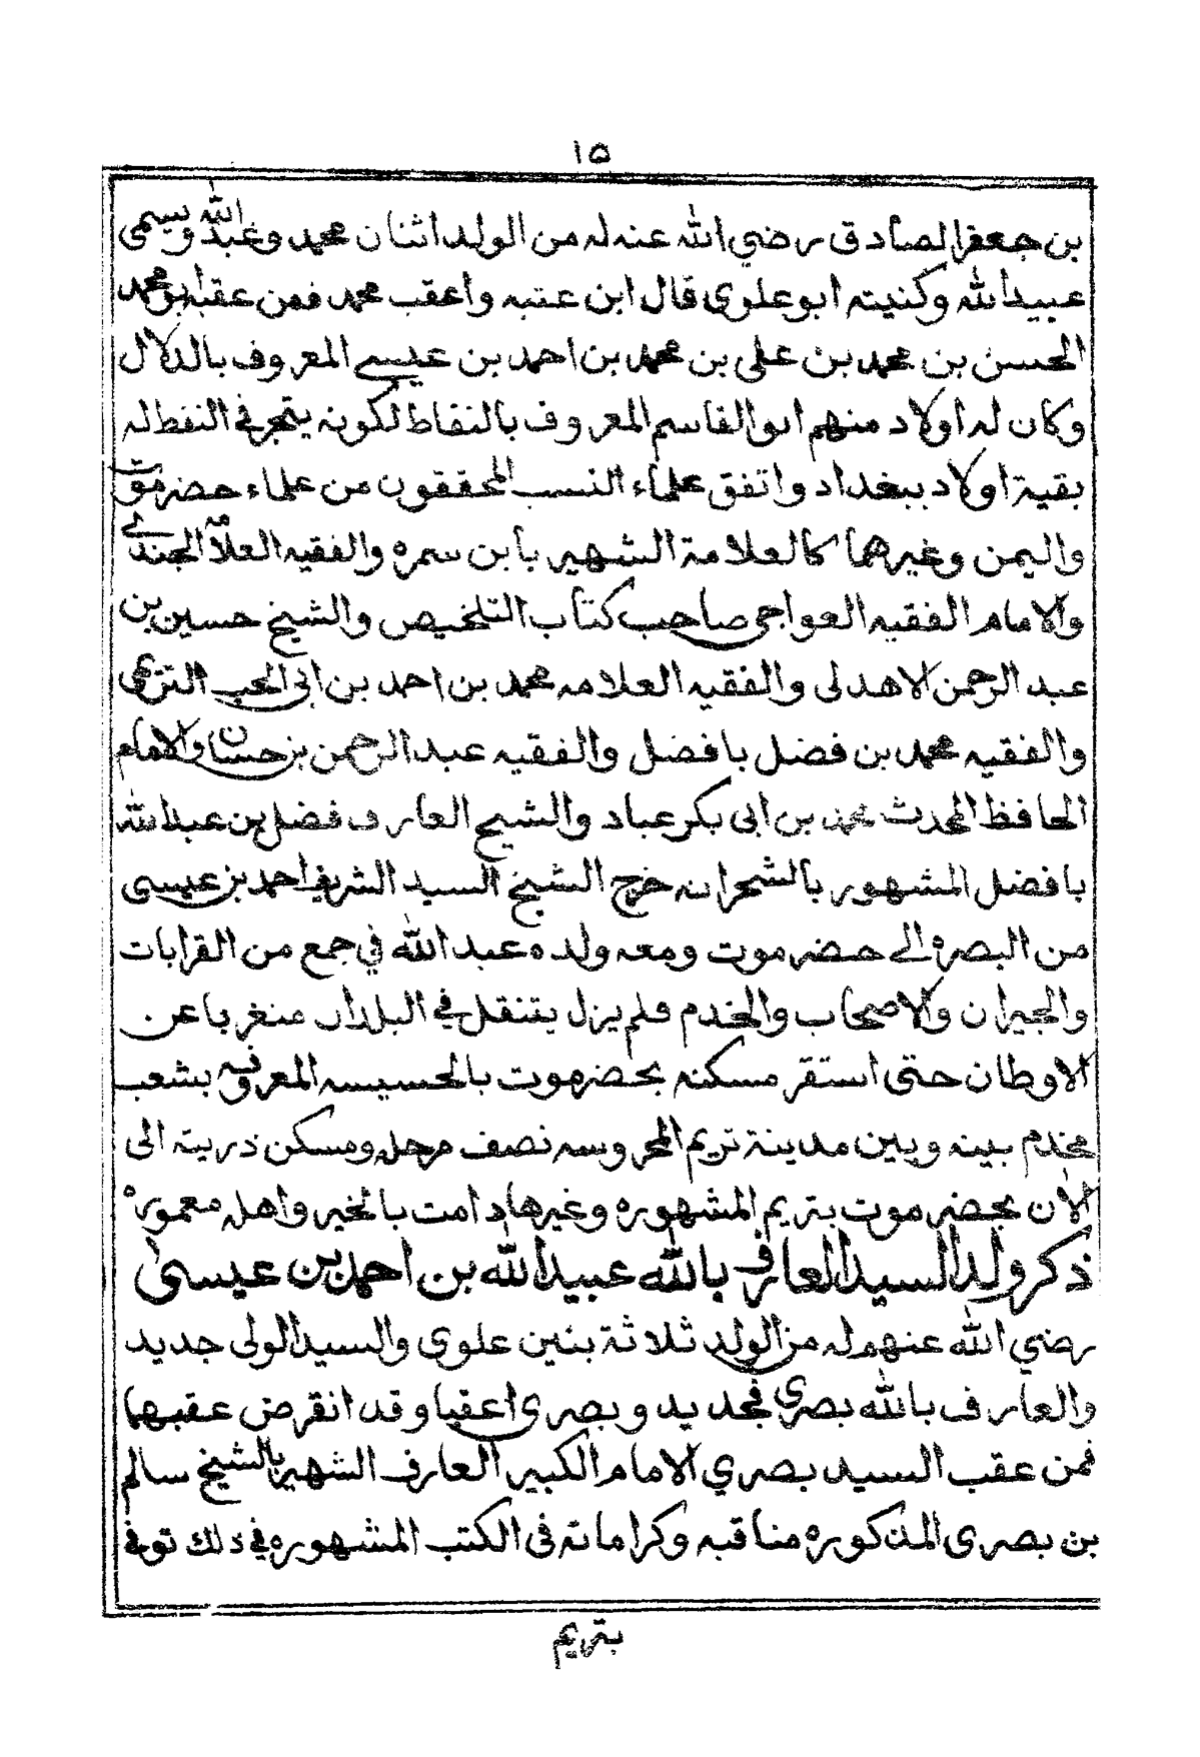 ١٥
بن جعفر الصادق رضي الله عنه له من الولد اثنان محمد وعبد الله ويسمى
عبيد الله وكنيته ابو علوي قال ابن عتبه واعقب محمد فمن عقبه ابو محمد
الحسن بن محمد بن علي بن محمد بن احمد بن عيسى المعروف بالدلال
وكان له اولاد منهم ابو القاسم المعروف بالنفاط لكونه يتجر في النفط له
بقية اولاد ببغداد واتفق علماء النسب المحققون من علماء حضرموت
واليمن وغيرهما كالعلامة الشهير بابن سمره والفقيه العلامة الجندي
والامام الفقيه العواجي صاحب كتاب التلخيص والشيخ حسين بن
عبد الرحمن الاهدلى والفقيه العلامه محمد بن احمد بن ابي الحب التريمي
والفقيه محمد بن فضل بافضل والفقيه عبد الرحمن بن حسان والامام
الحافظ المحدث محمد بن ابى بكر عباد والشيخ العارف فضل بن عبد الله
بافضل المشهور بالشحر انه خرج الشيخ السيد الشريف احمد بن عيسى
من البصره الى حضرموت ومعه ولده عبد الله في جمع من القرابات
والجيران والاصحاب والخدم فلم يزل يتنقل في البلدان متغربا عن
الاوطان حتى استقر مسكنه بحضرموت بالحسيسه المعروفه بشعب
مخدم بينه وبين مدينة تريم المحروسه نصف مرحله ومسكن ذريته الى
الان بحضرموت بتريم المشهوره وغيرها دامت بالخير واهله معموره
ذكر ولد السيد العارف بالله عبيد الله بن احمد بن عيسى
رضي الله عنهم له من الولد ثلاثة بنين علوي والسيد الولى جديد
والعارف بالله بصري فجديد وبصري اعقبا وقد انقرض عقبهما
فمن عقب السيد بصري الامام الكبير العارف الشهير بالشيخ سالم
بن بصرى المذكوره مناقبه وكراماته فى الكتب المشهوره في ذلك توفي
بتريم